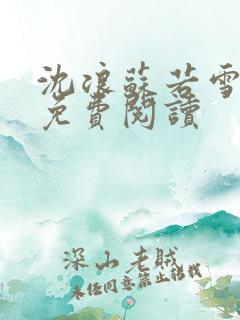 沈浪蘇若雪
免費閱讀
深山老賊
未经同意禁止转载